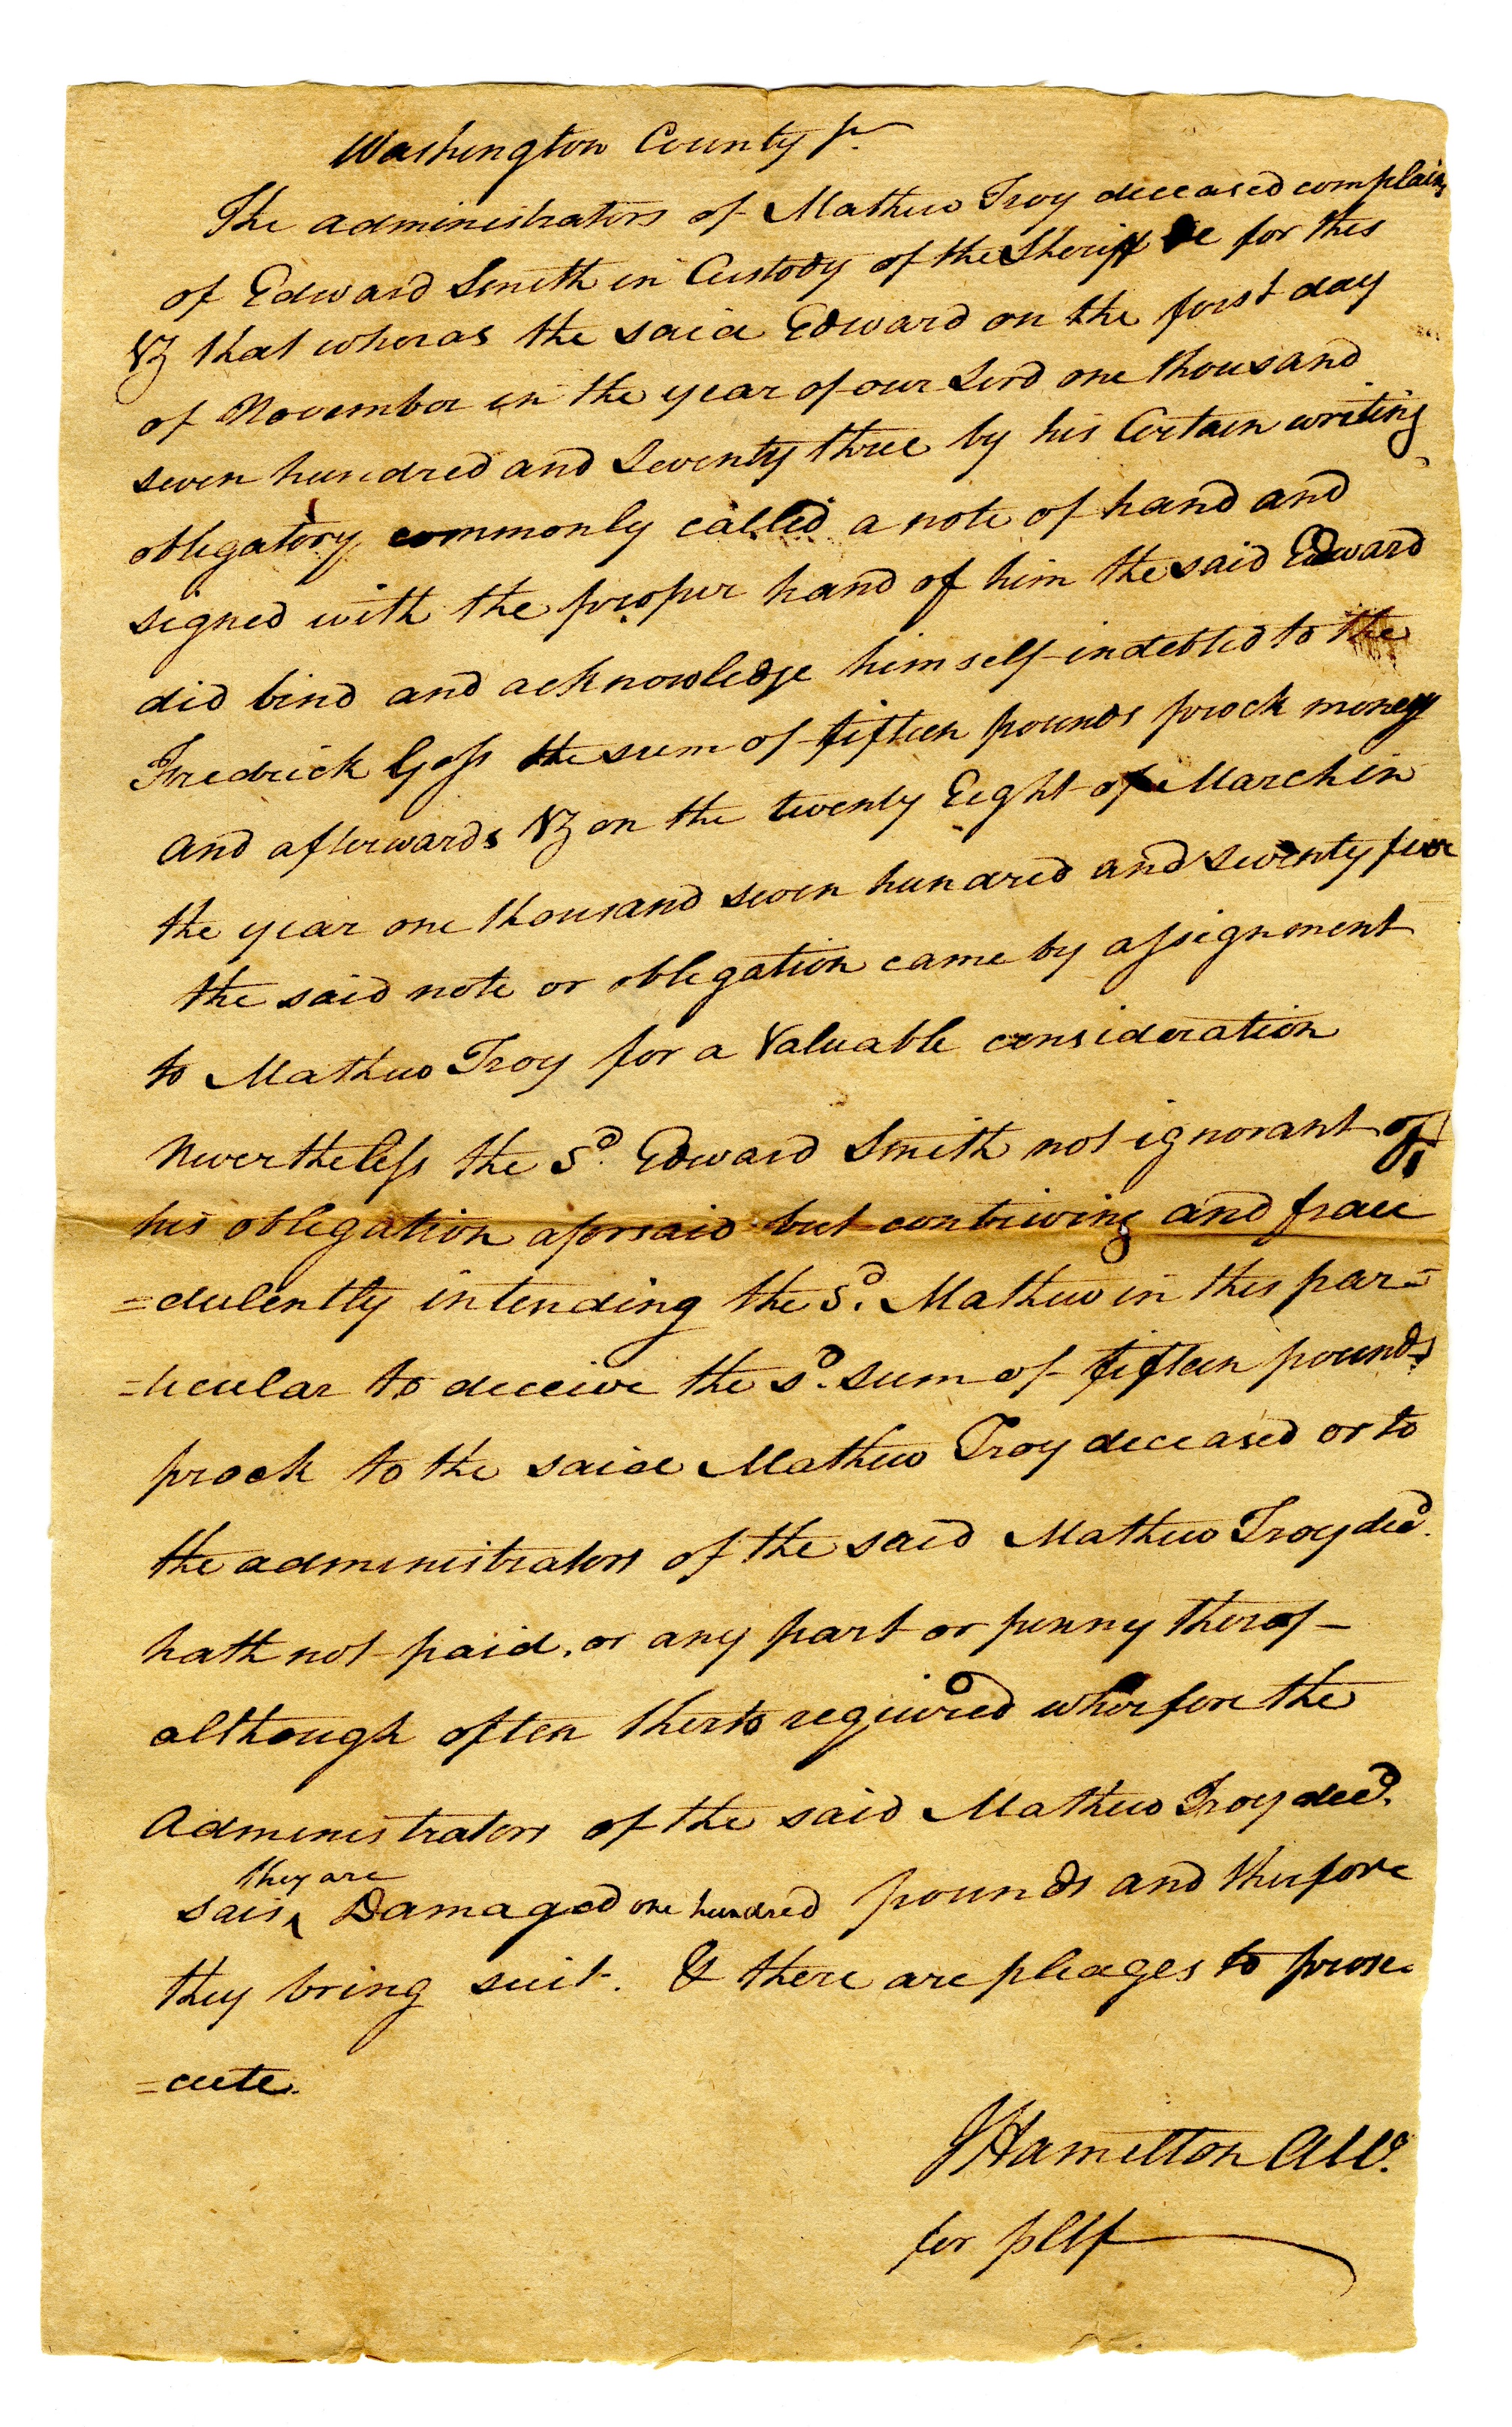 Washington County Sc.
The administrators of Mathew Troy deceased complains
of Edward Smith in Custody of the Sheriff &c for this
Vz that wheras the said Edward on the first day
of November in the year of our Lord one thousand
seven hundred and Seventy three by his Certain writing
obligatory commonly called a note of hand and
signed with the proper hand of him the said Edward
did bind and acknowledge himself indebted to the
Fredrick Goss the sum of fifteen pounds prock money
and afterwards Vz on the twenty Eight of March in
the year one thousand seven hundred and seventy four
the said note or obligation came by assignment
to Mathew Troy for a Valuable consideration
Nevertheless the Sd. Edward Smith not ignorant of
his obligation aforsaid but contriving and frau
=dulently intending the Sd. Mathew in this par=
=ticular to deceive the sd. sum of fifteen pounds
prock to the said Mathew Troy deceased or to
the administrators of the said Mathew Troy decd.
hath not paid, or any part or penny therof -
although often therto required wherfore the
Administrators of the said Mathew Troy decd.
they are
said ^ Damaged one hundred pounds and therfore
they bring suit. & there are pledges to prose
=cute.
J Hamilton Atto.
for pltf